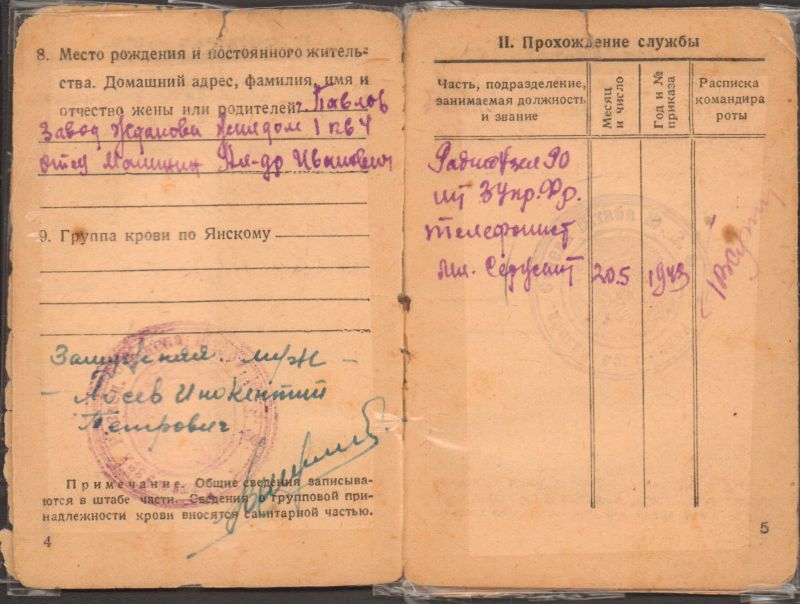 8. Место рождения и постоянного житель-
ства. Домашний адрес, фамилия, имя и
отчество жены или родителей г. Павлов
Завод Жданова 1 кв 4
отец Малинин Ал-др Иванович
9. Группа крови по Янскому
Замужняя. муж –
– Лосев Инокентий
Петрович.
Примечание. Общие сведения записыва-
ются в штабе части. Сведения о групповой при-
надлежности крови вносятся санитарной частью.
4
II. Прохождение службы
Часть, подразделение, занимаемая должность и звание
Месяц и число
Год и № приказа
Расписка командира роты
Радиоузел 90
3 Укр. Фр.
телефонист
мл. Сержант 20.5 1943
5